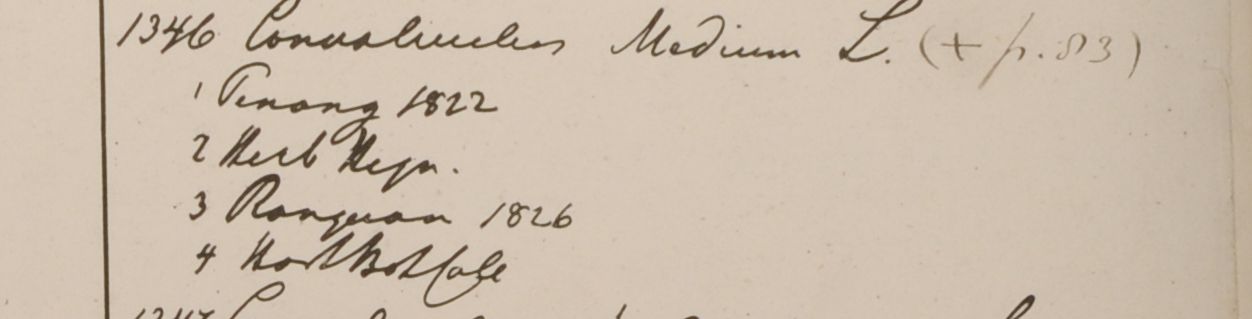 1346 Convolvulus Medium L. (+ p. 83)
1 Penang 1822
2 Herb Heyn.
3 Rangoon 1826
4 Hort Bot Calc